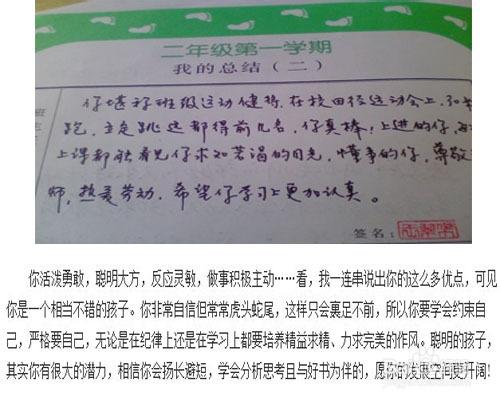 二年级第一学期
我的总结（二）
你堪称班级运动健将，在校田径运动会上，30米
跑，立定跳远都得前几名，你真棒！上进的你，每
上课都能看见你求知若渴的目光，懂事的你，尊敬
师，热爱劳动，希望你学习上更加认真。
签名：
你活泼勇敢，聪明大方，反应灵敏，做事积极主动……看，我一连串说出你的这么多优点，可见
你是一个相当不错的孩子。你非常自信但常常虎头蛇尾，这样只会裹足不前，所以你要学会约束自
己，严格要自己，无论是在纪律上还是在学习上都要培养精益求精、力求完美的作风。聪明的孩子，
其实你有很大的潜力，相信你会扬长避短，学会分析思考且与好书为伴的，愿你的发展空间更开阔！